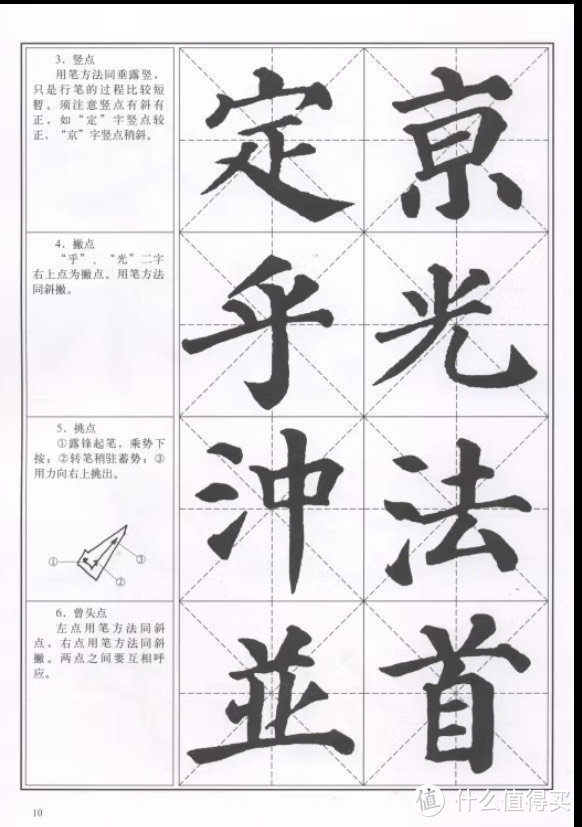 3. 竖点
用笔方法同垂露竖,
只是行笔的过程比较短
暂。须注意竖点有斜有
正,如“定”字竖点较
正,“京”字竖点稍斜。
定京
4. 撇点
“乎”、“光”二字
右上点为撇点。用笔方法
同斜撇。
乎光
5. 挑点
①露锋起笔、乘势下
按;②转笔稍驻蓄势;③
用力向右上挑出。
①
②
③
冲法
6. 曾头点
左点用笔方法同斜
点,右点用笔方法同斜
撇。两点之间要互相呼
应。
並首
10
值 什么值得买